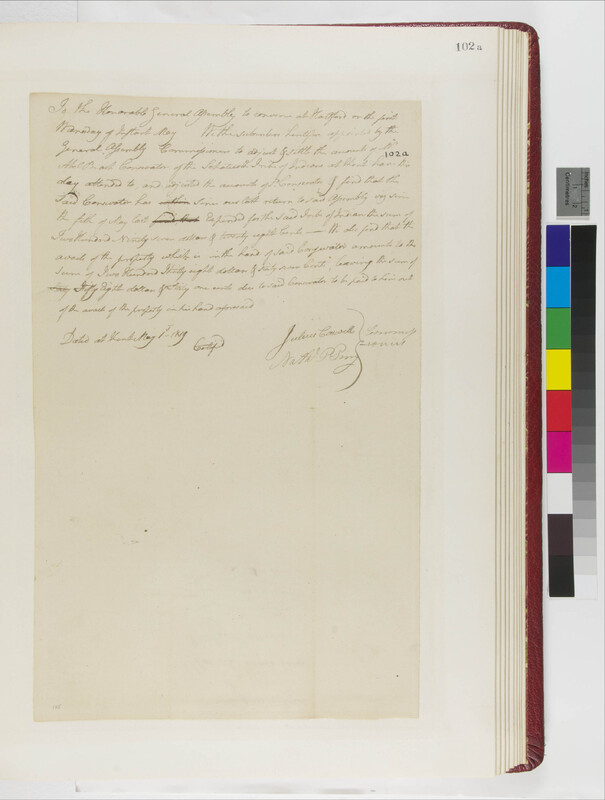 102a
To the Honorable General Assembly to convene at Hartford on the first
Wednesday of Instant May We the subscribers hereto appointed by the
General Assembly Commissioners to adjust & settle the amount of Mr
102a
Conservator of the Tribe of Indians at Kent have this
day attended to, and adjusted the amounts of sd Conservator & find that the
Said Conservator has Since our last return to said Assembly
the fifth of May last expended for the said Tribe of Indians the sum of
Two Hundred Ninety seven dollars & twenty eight Cents — We also find that the
avails of the property which is in the hands of said Conservator amounts to the
sum of Two Hundred Thirty eight dollars & Sixty seven Cents, leaving the sum of
Fifty Eighth dollars & Sixty one cents due to said Conservator to be paid to him out
of the avails of the property in his hands aforesaid
Dated at Kent May 1st 1819
Certified
Julius Caswell
Nathl P Perry
Commissioners